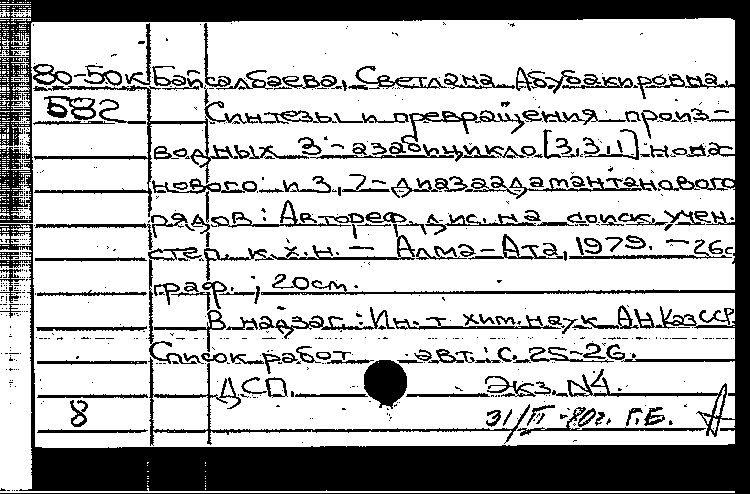 80-50к Байсалбаева, Светлана Абубакировна.
Б82г Синтезы и превращения произ-
водных 3-азабицикло[3,3,1]нона-
нового и 3,7-диазаадамантанового
рядов: Автореф. дис. на соиск. учен.
степ. к.х.н. — Алма-Ата, 1979. — 26с,
граф.; 20см.
В надзаг.: Ин-т хим. наук АН КазССР
Список работ авт.: с. 25-26.
ДСП. Экз. N4.
8 31/III-80г. Г.Б.